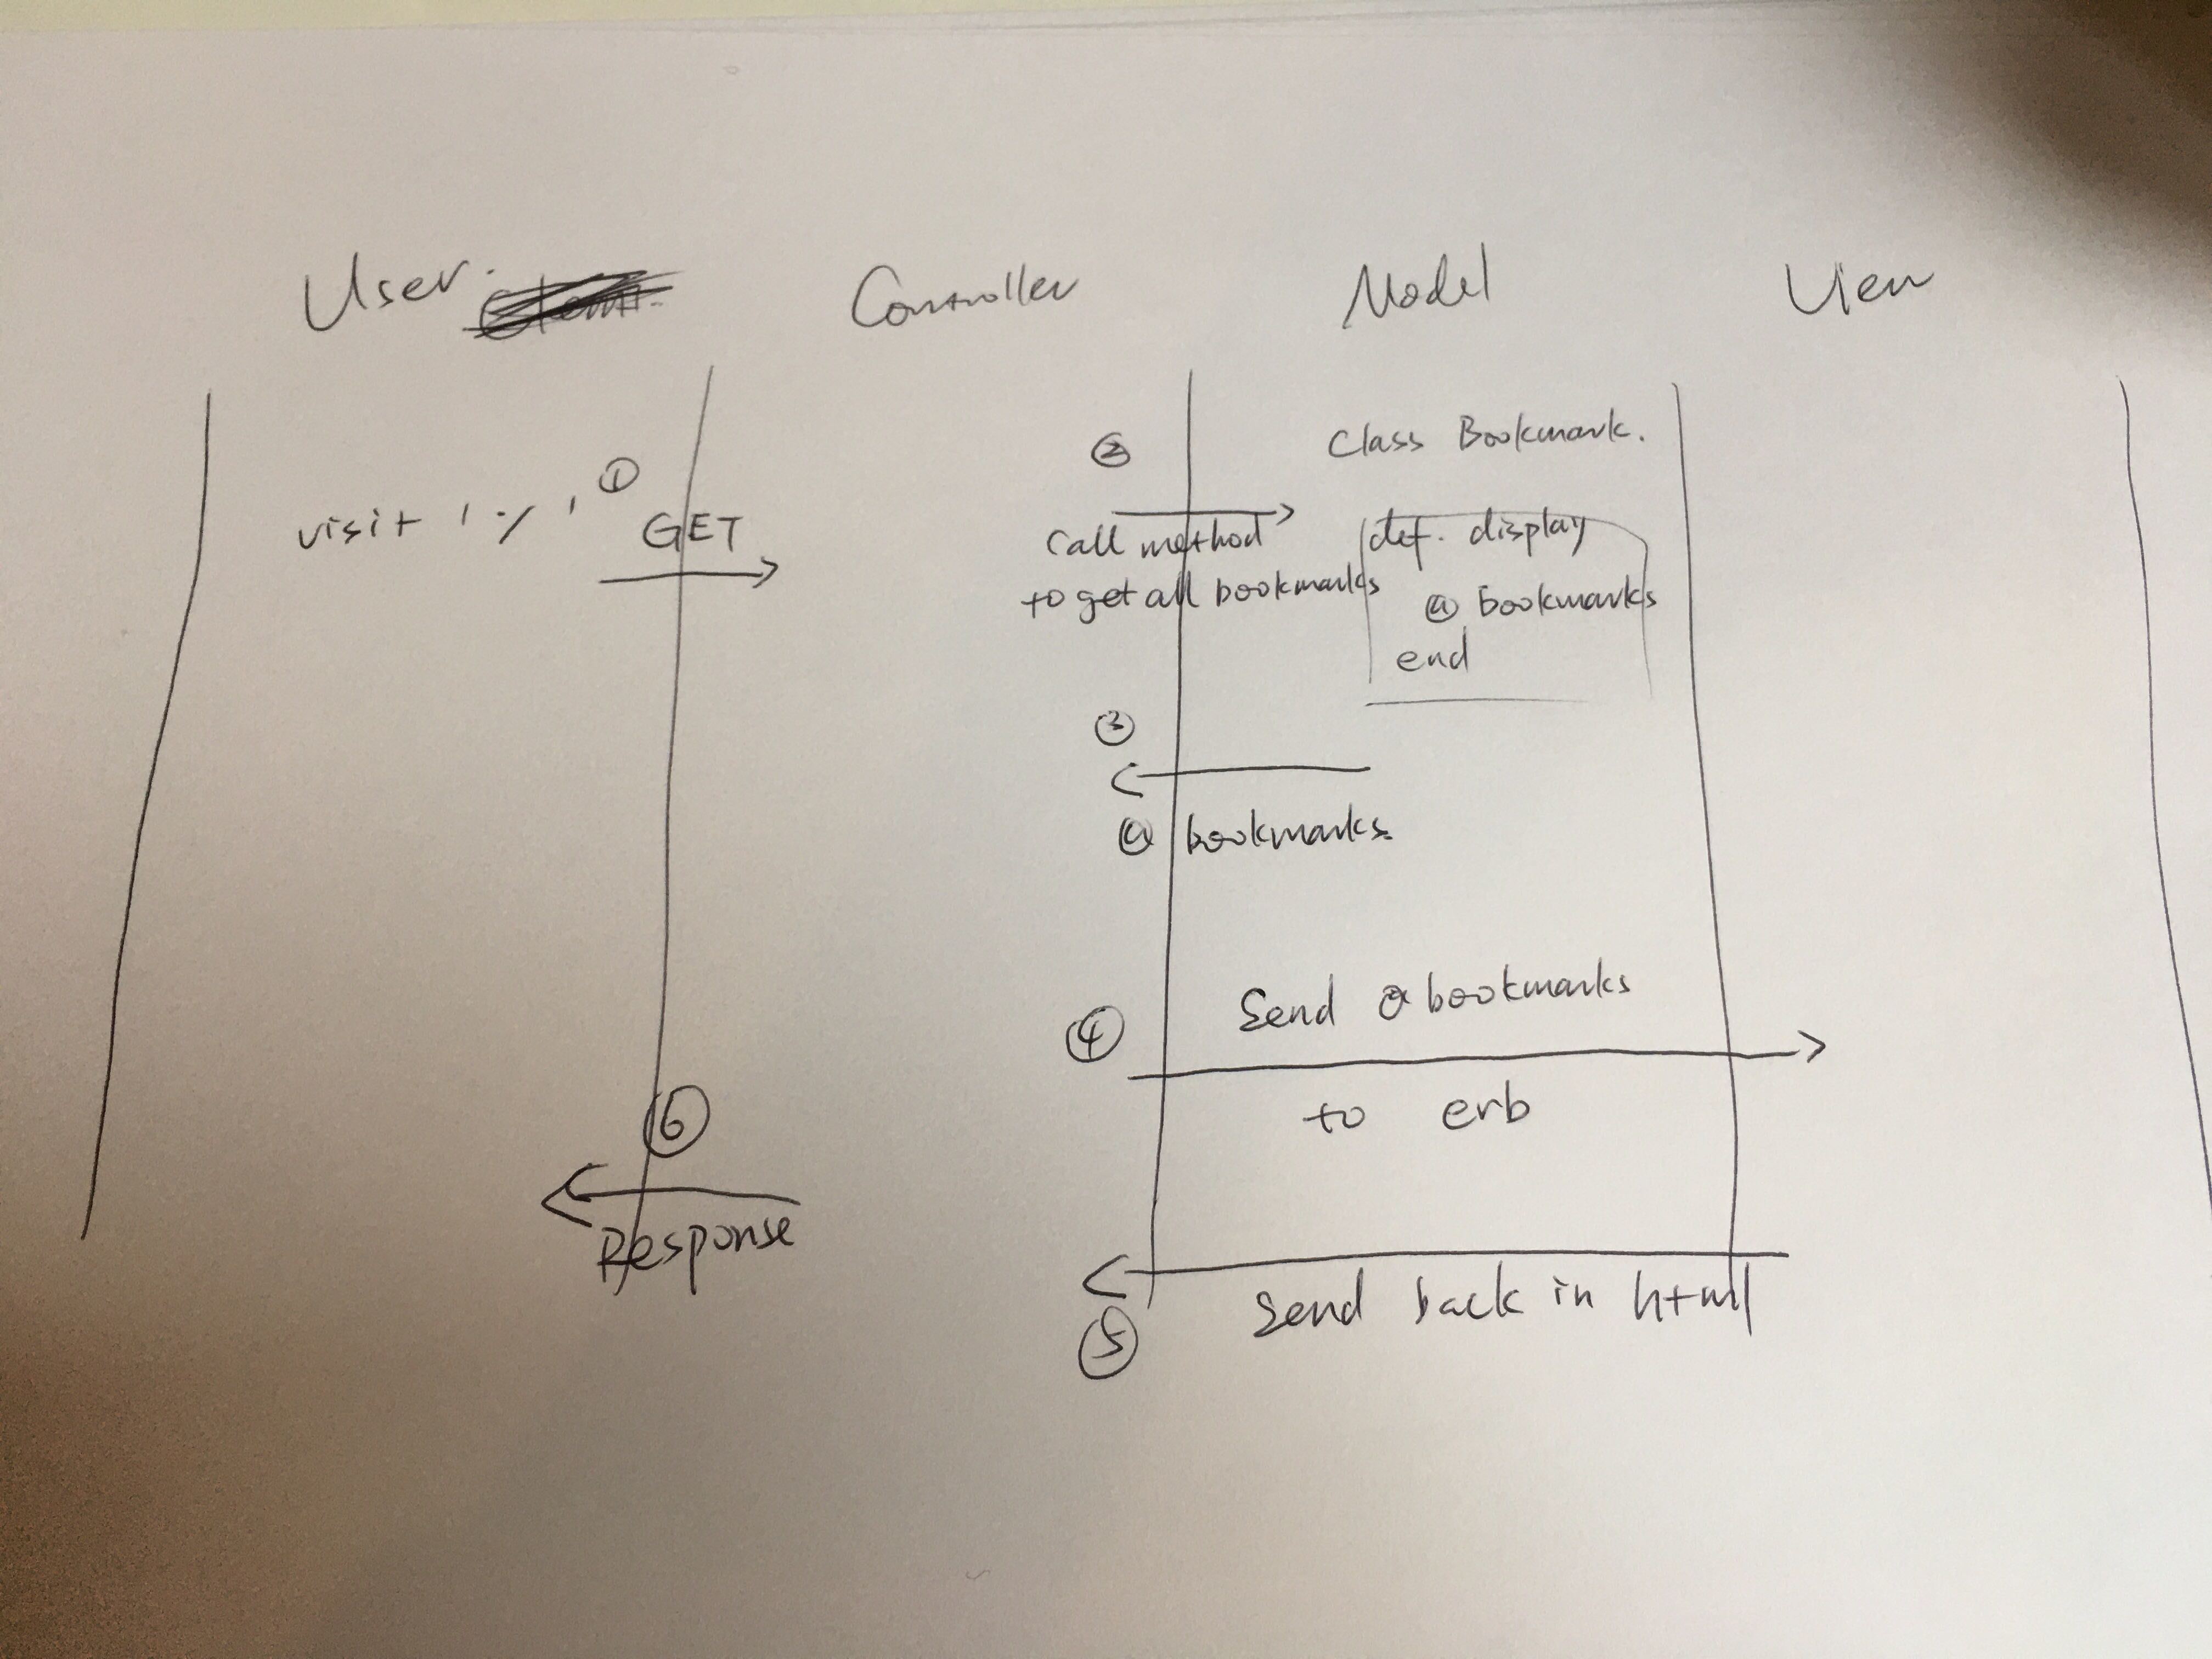 User. Controller Model View
①
visit '/' GET
②
call method
to get all bookmarks
Class Bookmark.
def. display
@ bookmarks
end
③
@ bookmarks.
④
Send @bookmarks
to erb
⑥
Response
Send back in html
⑤